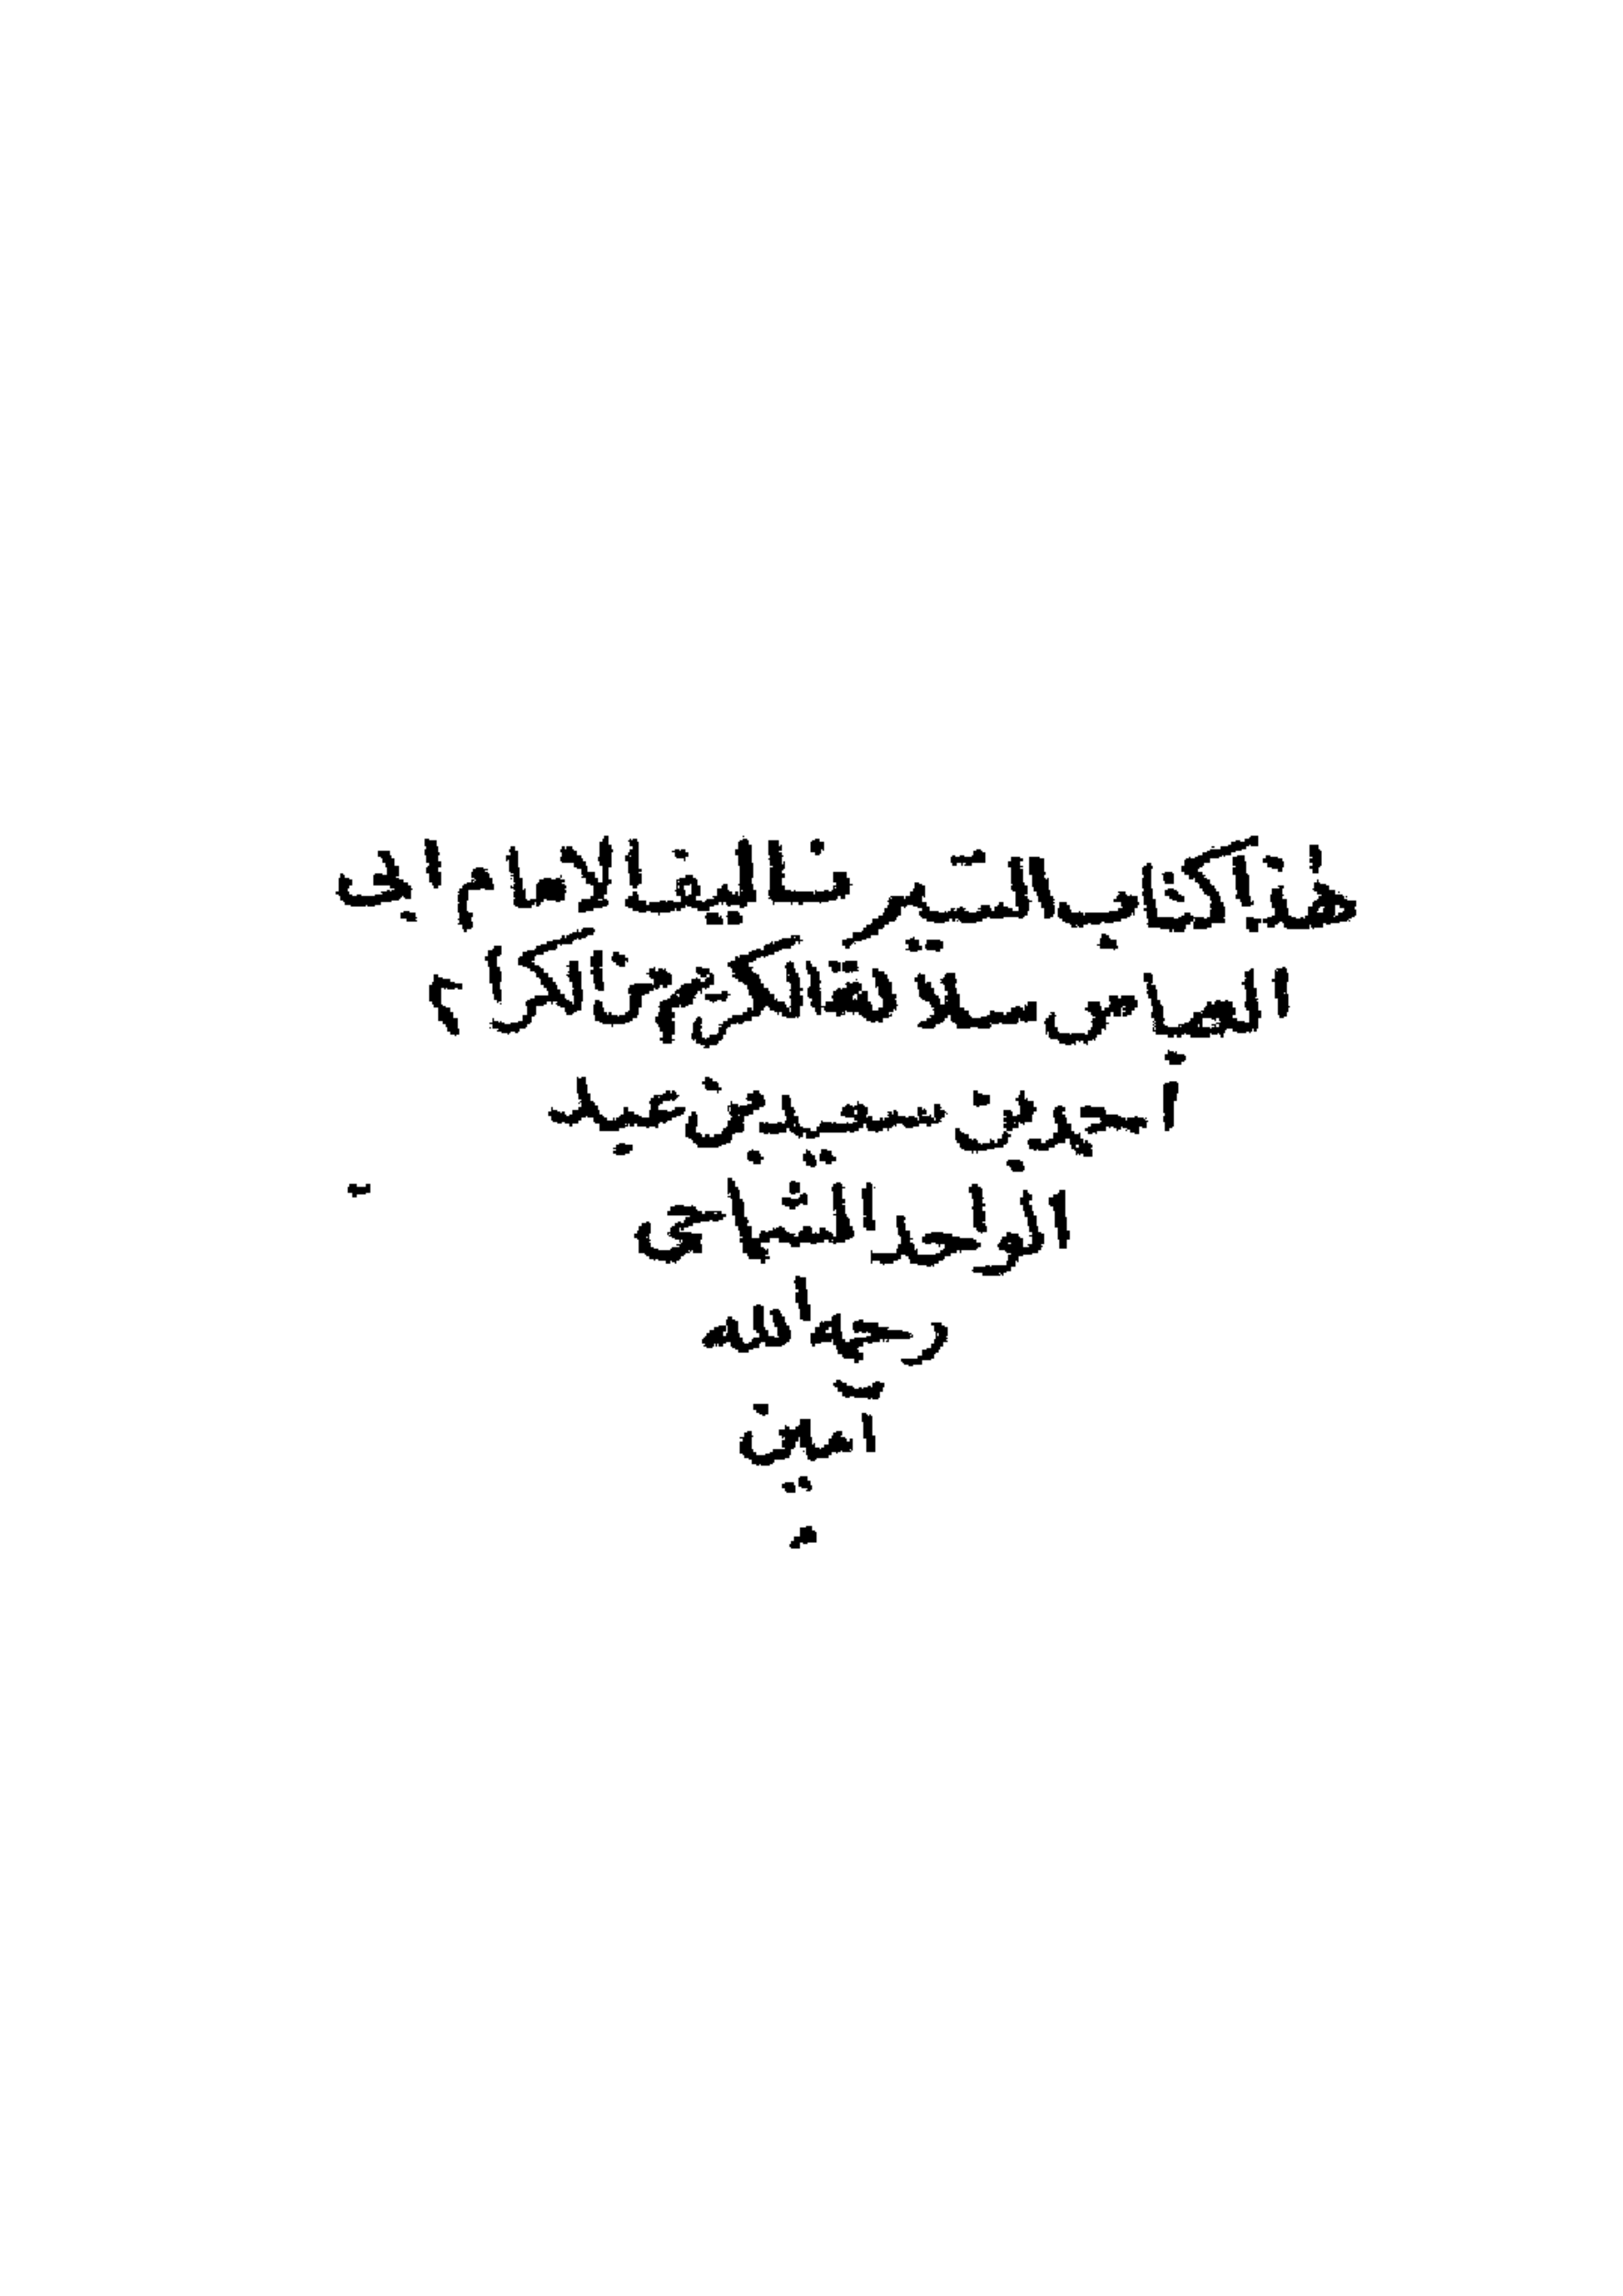 هذا كتاب السير تاليف الامام ابي
العباس سلالة الكرم من الكرام
أحمد بن سعيد بن عبد
الواحد الشماخي
رحمه الله
آمين
م